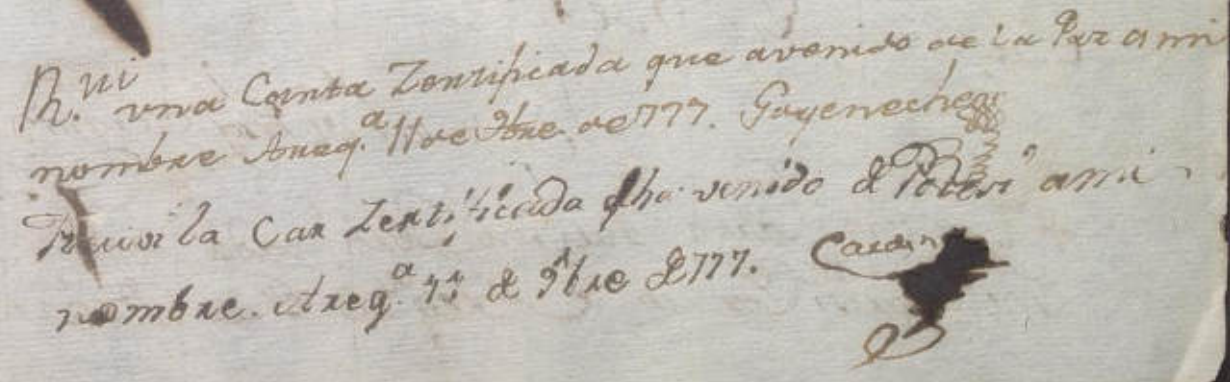 R.vi vna Carta Zertificada que avenido de la Paz a mi
nombre Areq.a 11 de 9bre de 777. Goyeneche
Reciui la Car Zertificada q ha venido d Potosi ami
nombre. Areq.a 11 d 9bre d 777.